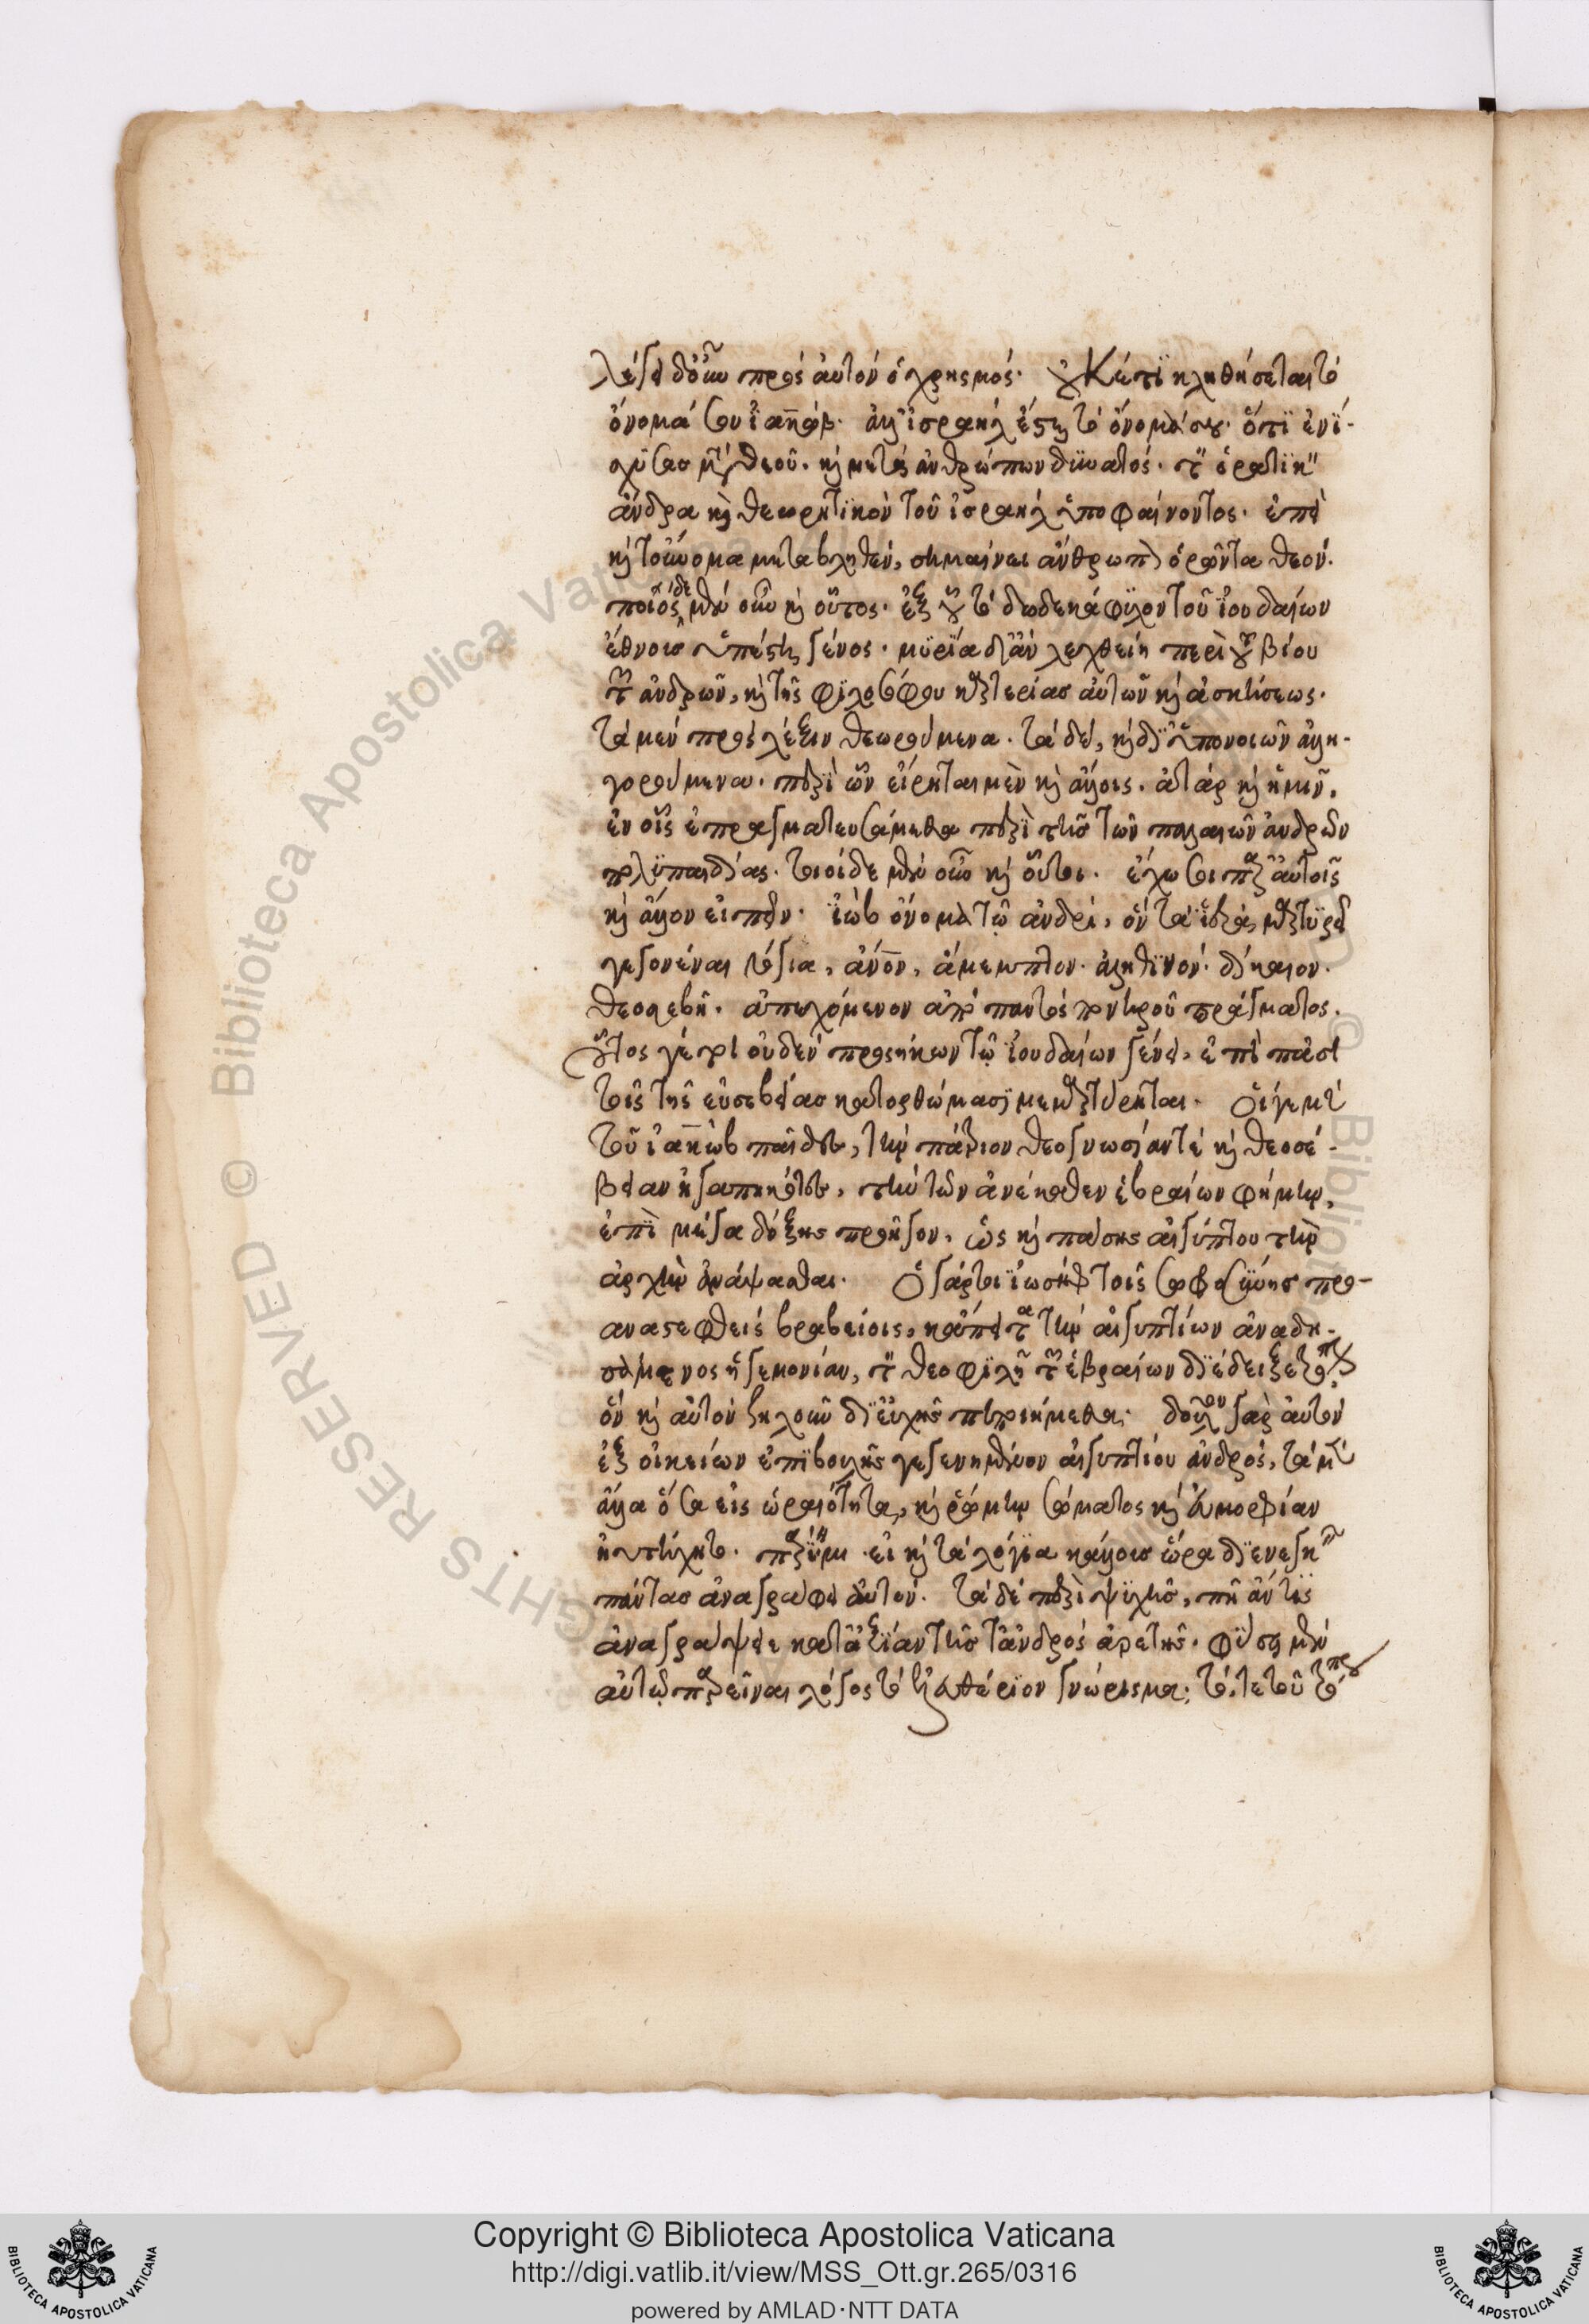 λέγει δ' οὖν πρὸς αὐτὸν ὁ χρησμός. οὐκέτι κληθήσεται τὸ
ὄνομά σου ἰακώβ. ἀλλ' ἰσραὴλ ἔσται τὸ ὄνομά σου. ὅτι ἐνί-
σχυσας μετὰ θεοῦ. καὶ μετὰ ἀνθρώπων δυνατός. τὸν ὁρατικὸν
ἄνδρα καὶ θεωρητικὸν τοῦ ἰσραὴλ ὑποφαίνοντος. ἐπεὶ
καὶ τοὔνομα μεταβληθὲν, σημαίνει ἄνθρωπον ὁρῶντα θεόν.
τοιόσδε μὲν οὖν καὶ οὗτος. ἐξ οὗ τὸ δωδεκάφυλον τοῦ ἰουδαίων
ἔθνους ὑπέστη γένος. μυρία δ' ἂν λεχθείη περὶ τοῦ βίου
τῶν ἀνδρῶν, καὶ τῆς φιλοσόφου καρτερίας αὐτῶν καὶ ἀσκήσεως.
τὰ μὲν πρὸς λέξιν θεωρούμενα. τὰ δὲ, καὶ δι' ὑπονοιῶν ἀλλη-
γορούμενα. περὶ ὧν εἴρηται μὲν καὶ ἄλλοις. ἀτὰρ καὶ ἡμῖν,
ἐν οἷς ἐπραγματευσάμεθα περὶ τῆς τῶν παλαιῶν ἀνδρῶν
πολυπαιδίας. τοιοίδε μὲν οὖν καὶ οὗτοι. ἔχω σοι παρ' αὐτοῖς
καὶ ἄλλον εἰπεῖν. ἰὼβ ὄνομα τῷ ἀνδρί, ὃν τὰ ἱερὰ μαρτυρεῖ
γεγονέναι λόγια, ἄνον, ἄμεμπτον. ἀληθινόν. δίκαιον.
θεοσεβῆ. ἀπεχόμενον ἀπὸ παντὸς πονηροῦ πράγματος.
οὗτος γέ τοι οὐδὲν προσήκων τῷ ἰουδαίων γένει, ἐπὶ πᾶσι
τοῖς τῆς εὐσεβείας κατορθώμασι μεμαρτύρηται. οἵ γε μὴν
τοῦ ἰακὼβ παῖδες, τὴν πάτριον θεογνωσίαν τὲ καὶ θεοσέ-
βειαν ἠγαπηκότες, τὴν τῶν ἀνέκαθεν ἑβραίων φήμην,
ἐπὶ μέγα δόξης προῆγον, ὡς καὶ πάσης αἰγύπτου τὴν
ἀρχὴν ἀνάψασθαι. ὃ γάρτοι ἰωσὴφ τοῖς σωφροσύνης προ-
αναστεφθεὶς βραβείοις, κἄπειτα τὴν αἰγυπτίων ἀναδη-
σάμενος ἡγεμονίαν, τὸ θεοφιλῆ τῶν ἑβραίων διέδειξε τρόπον,
ὃν καὶ αὐτὸν ζηλοῦν δι' εὐχῆς πεποιήμεθα. δοῦλον γὰρ αὐτὸν
ἐξ οἰκείων ἐπιβουλῆς γεγενημένον αἰγυπτίου ἀνδρός, τὰ μὲν
ἄλλα ὅσα εἰς ὡραιότητα, καὶ ῥώμην σώματος καὶ εὐμορφίαν
ηὐτύχητο. παρίημι. εἰ καὶ τὰ λόγια κάλλους ὥρα διενεγκεῖν
πάντας ἀναγράφει αὐτόν. τὰ δὲ περὶ ψυχῆς, πῆ ἄν τις
ἀναγράψειε κατ' ἀξίαν τῆς τἀνδρὸς ἀρετῆς. φύσει μὲν
αὐτῷ παρεῖναι λόγος τὸ ἐλευθέριον γνώρισμα. τό, τε τοῦ τρόπου